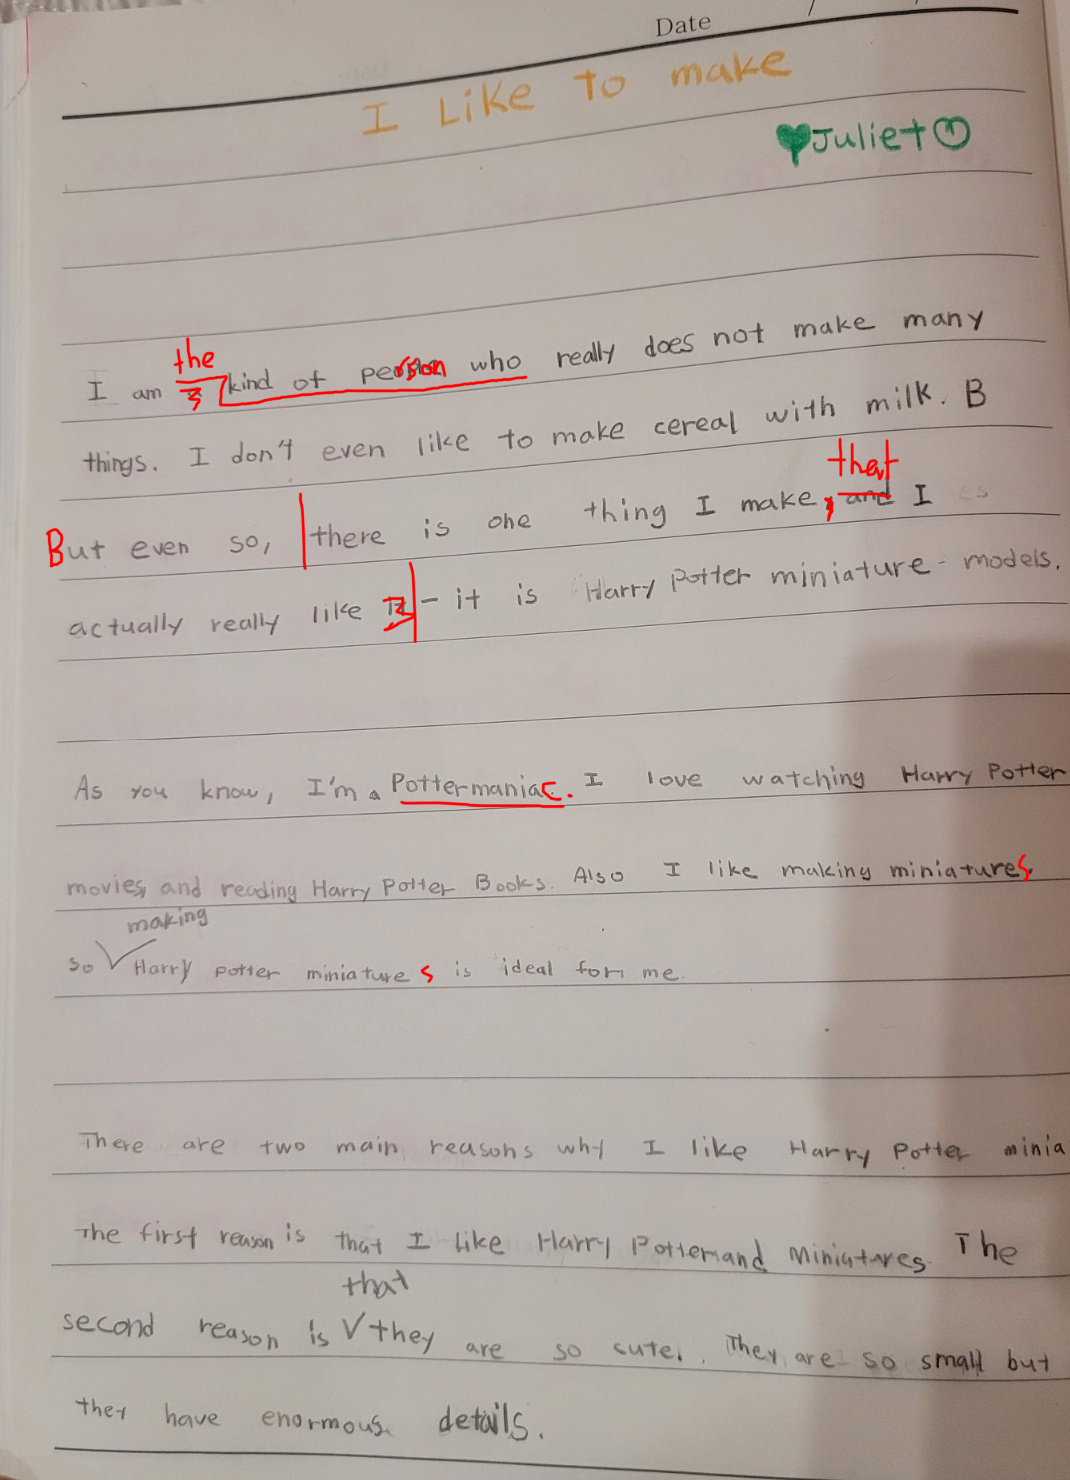 Date / /
I Like To make
Juliet
the
I am kind of person who really does not make many
things. I don't even like to make cereal with milk. B
that
But even so, there is one thing I make, and I es
actually really like it - it is Harry Potter miniature - models.
As you know, I'm a Pottermaniac. I love watching Harry Potter
movies, and reading Harry Potter Books. Also I like making miniatures
making
so Harry potter miniatures is ideal for me.
There are two main reasons why I like Harry Potter minia
The first reason is that I like Harry Potter and Miniatures. The
that
second reason is they are so cute. They are so small but
they have enormous details.